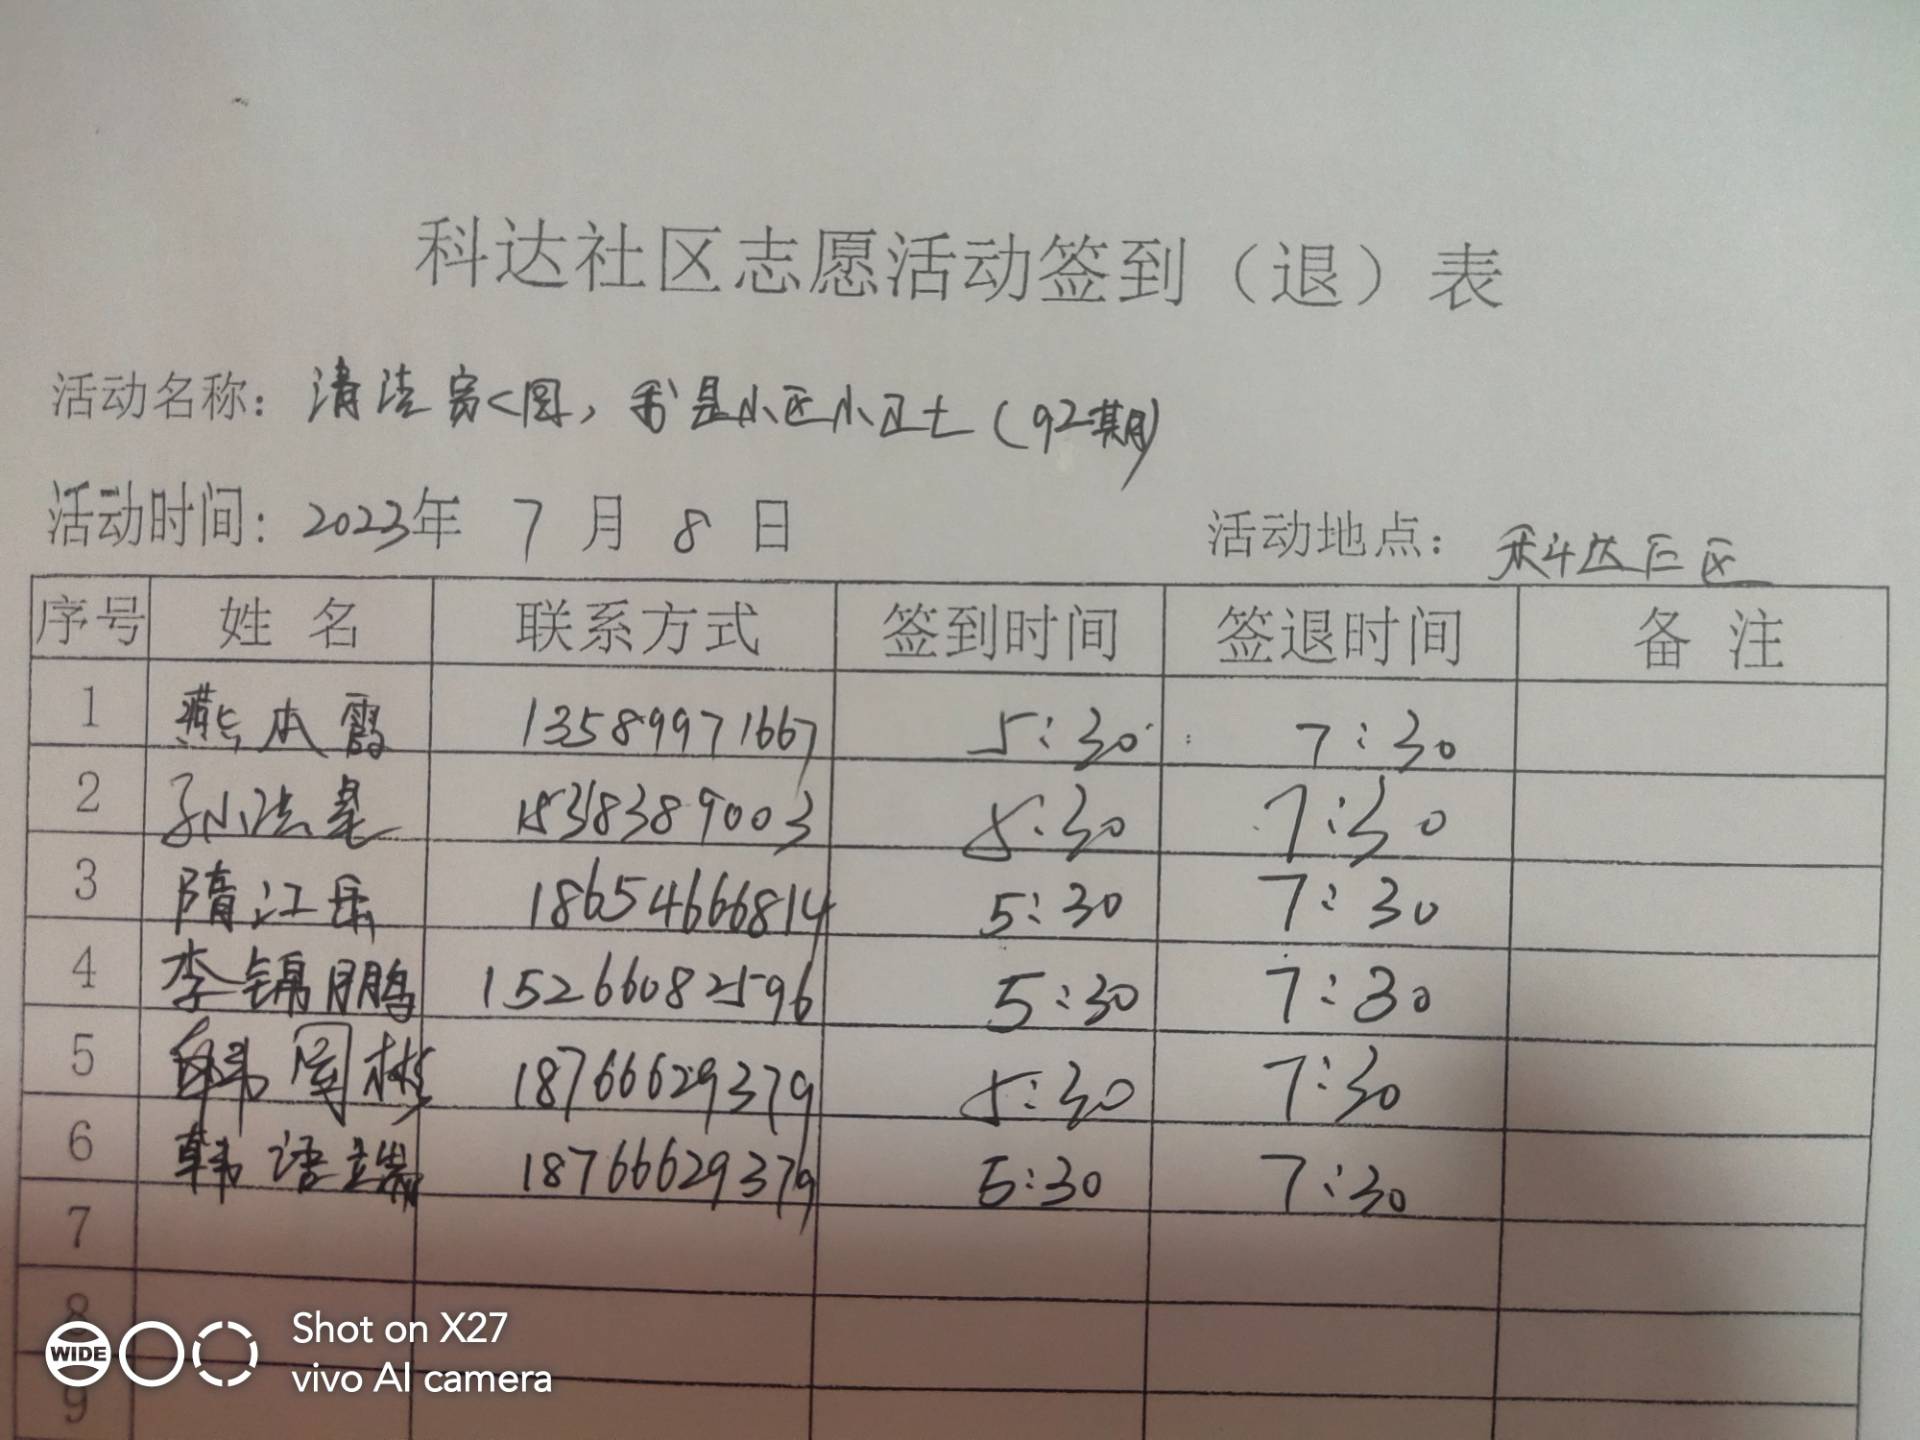 科达社区志愿活动签到（退）表
活动名称：清洁家园，我是小区小卫士（92期）
活动时间：2023年 7 月 8 日 活动地点：科达三区
序号 姓 名 联系方式 签到时间 签退时间 备 注
1 燕本霞 13589971667 5:30 7:30
2 孙法 5:30 7:30
3 隋江 18654666814 5:30 7:30
4 李锦鹏 15266082596 5:30 7:30
5 韩国彬 18766629379 5:30 7:30
6 韩语端 18766629379 5:30 7:30
7
8
9
WIDE
Shot on X27
vivo AI camera